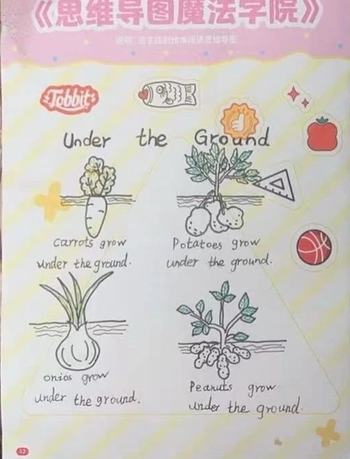 《思维导图魔法学院》
Tobbit
Under the Ground
Carrots grow
under the ground.
Potatoes grow
under the ground.
onios grow
under the ground.
Peanuts grow
under the ground.
12